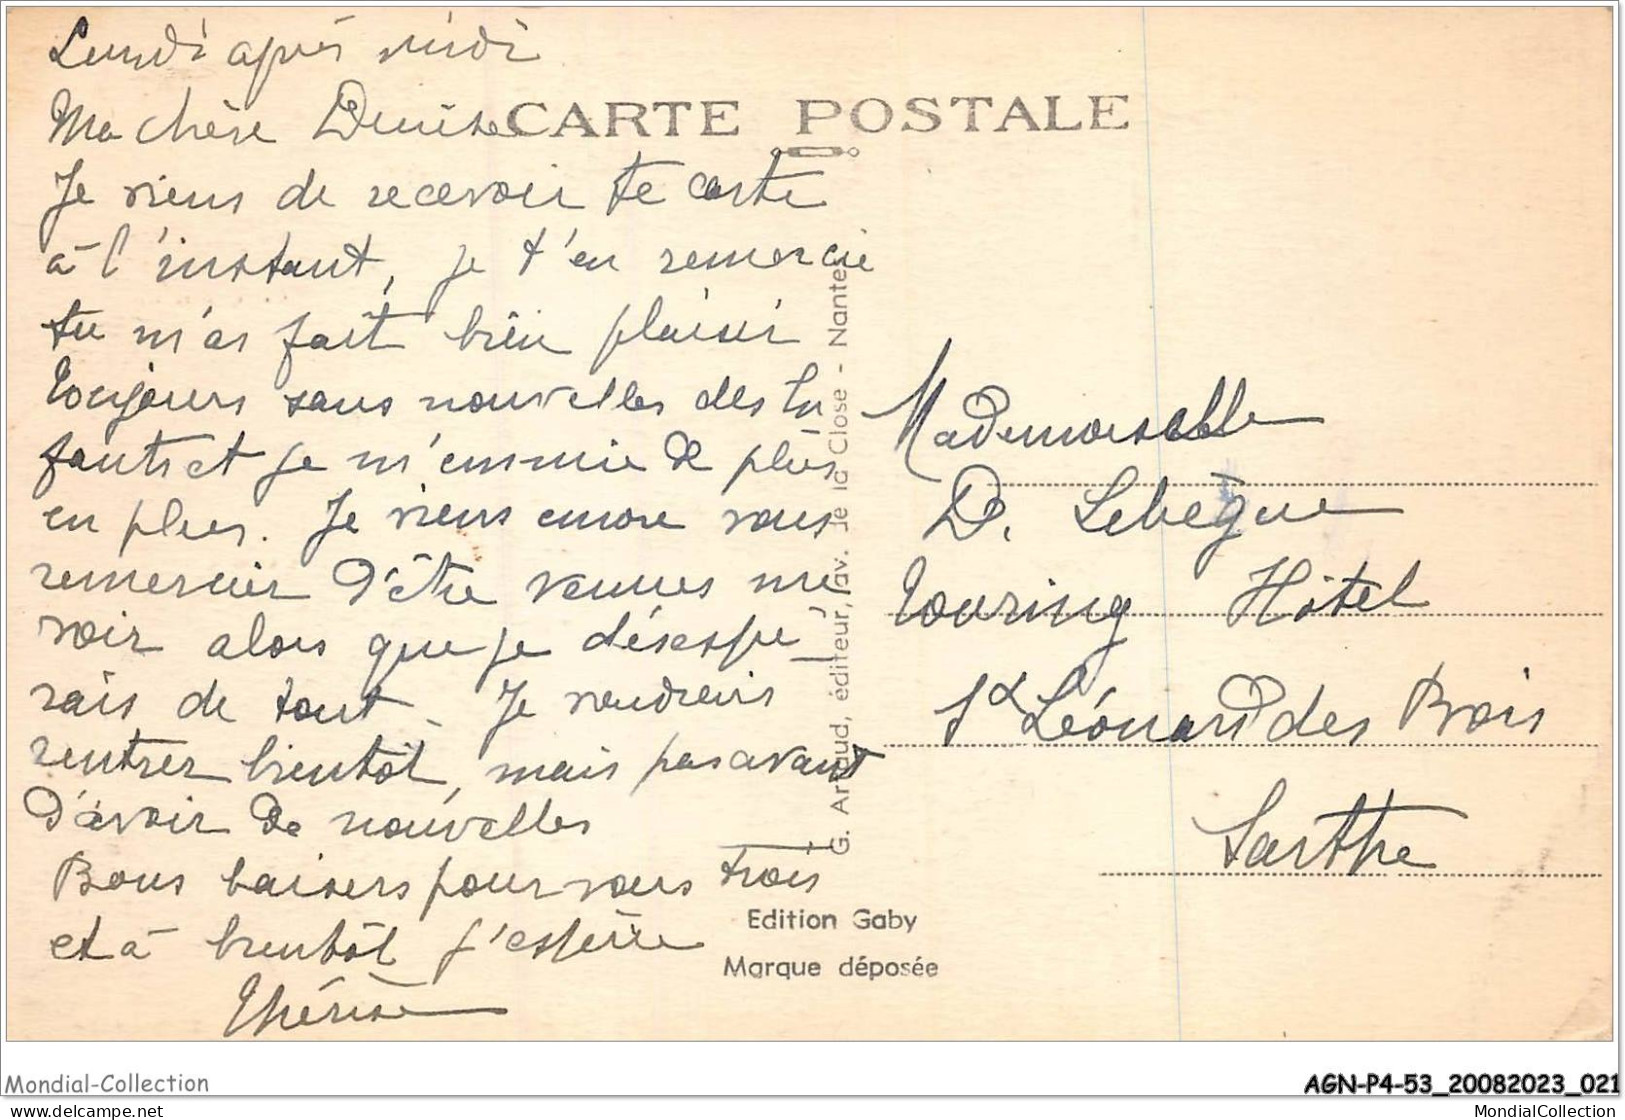 Lundi après midi
Ma chère Denise
CARTE POSTALE
Je viens de recevoir te carte
à l'instant, je t'en remercie
tu m'as fait bien plaisir
Toujours sans nouvelles des En
fants et je m'ennuie de plus
en plus. Je viens encore vous
remercier d'être venues me
voir alors que je désespé-
rais de tout. Je voudrais
rentrer bientôt, mais pas avant
d'avoir de nouvelles
Bons baisers pour vous trois
et à bientôt j'espère
Thérèse
G. Artaud, éditeur, av. de la Close - Nantes
Edition Gaby
Marque déposée
Mademoiselle
D. Lebègue
Touring Hôtel
St Léonard des Bois
Sarthe
Mondial-Collection
AGN-P4-53_20082023_021
www.delcampe.net
MondialCollection